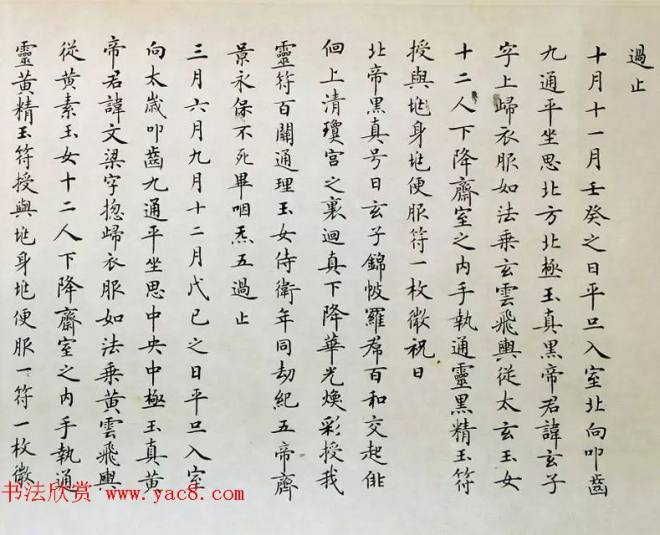 過止
十月十一月壬癸之日平旦入室北向叩齒
九通平坐思北方北極玉真黑帝君諱玄子
字上歸衣服如法乘玄雲飛輿從太玄玉女
十二人下降齋室之内手執通靈黑精玉符
授與地身地便服符一枚微祝曰
北帝黑真号曰玄子錦帔羅帬百和交起俳
佪上清瓊宫之裏迴真下降華光煥彩授我
靈符百關通理玉女侍衛年同劫紀五帝齊
景永保不死畢咽炁五過止
三月六月九月十二月戊己之日平旦入室
向太歲叩齒九通平坐思中央中極玉真黄
帝君諱文梁字揔歸衣服如法乘黄雲飛輿
從黄素玉女十二人下降齋室之内手執通
靈黄精玉符授與地身地便服一符一枚微
书法欣赏 www.yac8.com